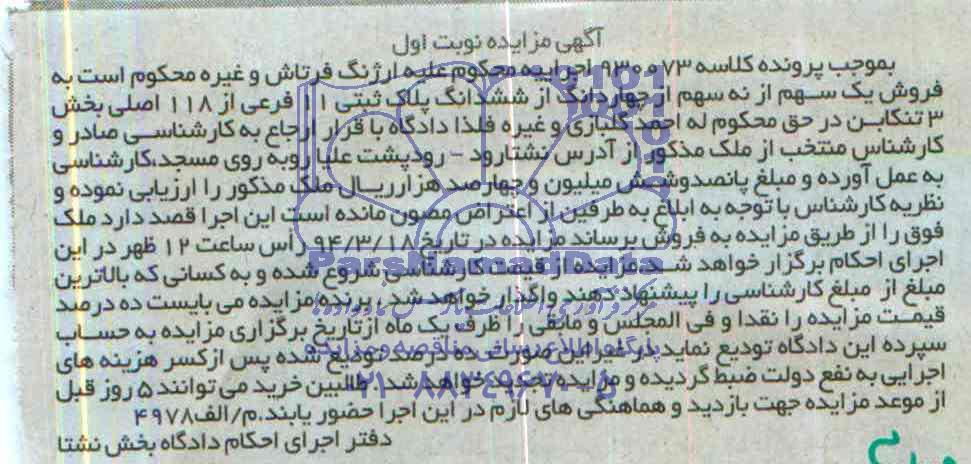 آگهی مزایده نوبت اول
بموجب پرونده کلاسه ۹۳۰۰۷۳ اجراییه محکوم علیه ارژنگ فرتاش و غیره محکوم است به
فروش یک سهم از نه سهم از چهاردانگ از ششدانگ پلاک ثبتی ۱۱ فرعی از ۱۱۸ اصلی بخش
۳ تنکابن در حق محکوم له احمد گلبازی و غیره فلذا دادگاه با قرار ارجاع به کارشناسی صادر و
کارشناس منتخب از ملک مذکور از آدرس نشتارود - رودپشت علیا روبه روی مسجد،کارشناسی
به عمل آورده و مبلغ پانصدوشش میلیون و چهارصد هزارریال ملک مذکور را ارزیابی نموده و
نظریه کارشناس با توجه به ابلاغ به طرفین از اعتراض مصون مانده است این اجرا قصد دارد ملک
فوق را از طریق مزایده به فروش برساند مزایده در تاریخ ۹۴/۳/۱۸ راس ساعت ۱۲ ظهر در این
اجرای احکام برگزار خواهد شد.مزایده از قیمت کارشناسی شروع شده و به کسانی که بالاترین
مبلغ از مبلغ کارشناسی را پیشنهاد دهند واگذار خواهد شد. برنده مزایده می بایست ده درصد
قیمت مزایده را نقدا و فی المجلس و مابقی را ظرف یک ماه از تاریخ برگزاری مزایده به حساب
سپرده این دادگاه تودیع نماید در غیر این صورت ده درصد تودیع شده پس از کسر هزینه های
اجرایی به نفع دولت ضبط گردیده و مزایده تجدید خواهد شد. طالبین خرید می توانند ۵ روز قبل
از موعد مزایده جهت بازدید و هماهنگی های لازم در این اجرا حضور یابند.م/الف۴۹۷۸
دفتر اجرای احکام دادگاه بخش نشتا
ParsNamadData
۰۲۱-۸۸۳۴۹۶۷۰-۵